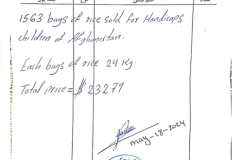 1563 bags of rice sold for Handicaps
children of Afghanistan.
Each bags of rice 24 Kg.
Total price = $ 23279
may-18-2024